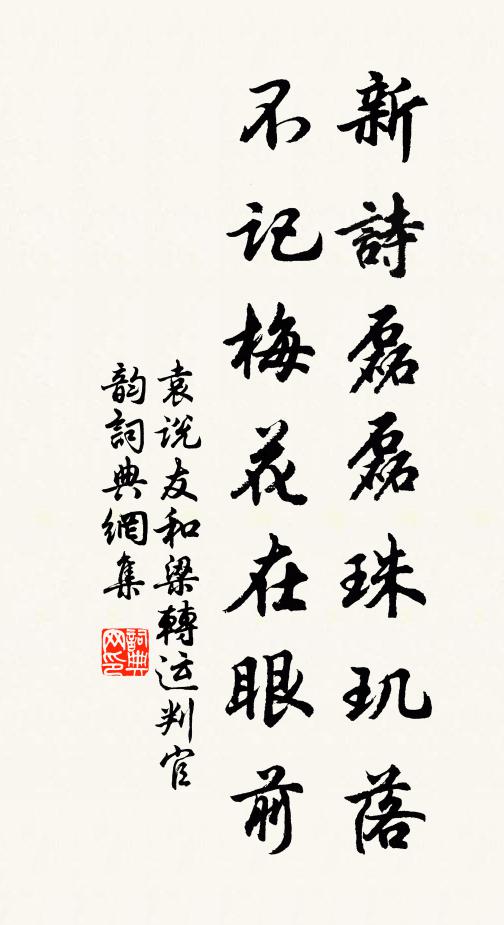 新詩磊磊珠玑落
不记梅花在眼前
袁说友和梁轉运判官
韵詞典網集
詞典网印